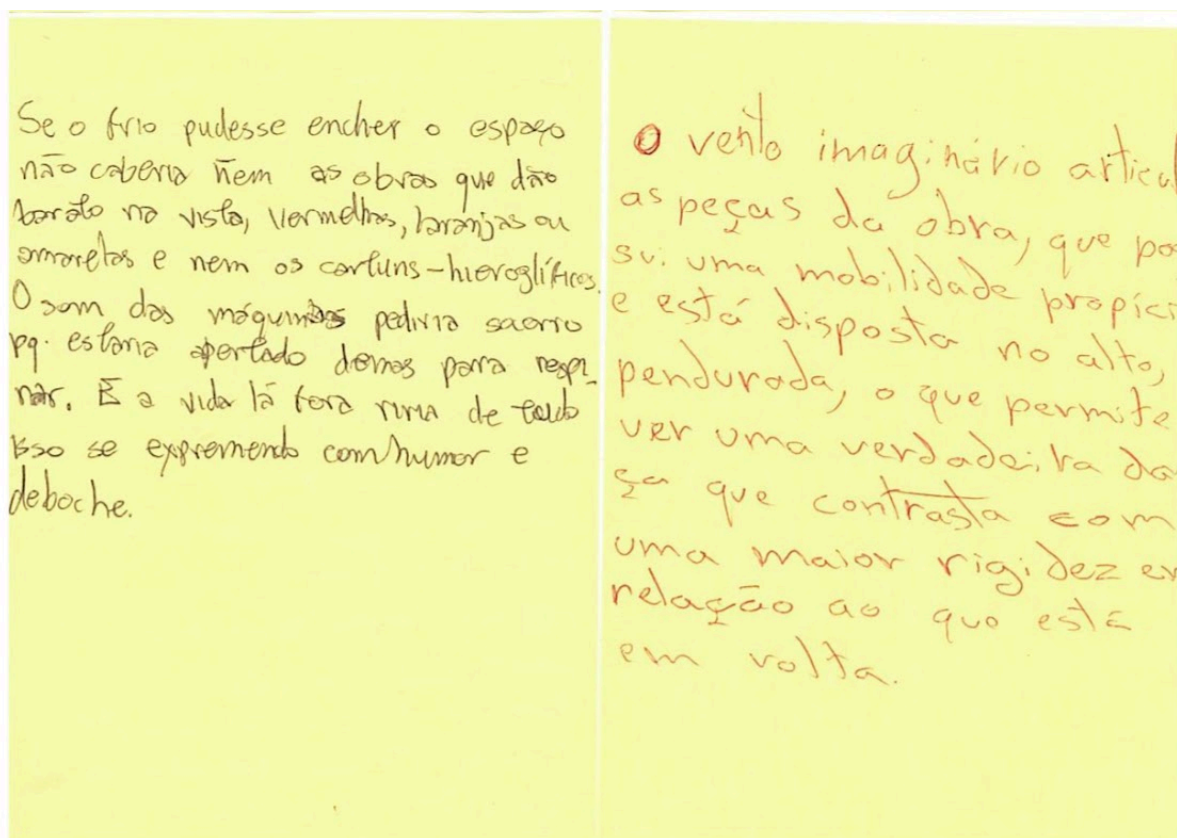 Se o frio pudesse encher o espaço
não caberia nem as obras que dão
barato na vista, vermelhas, laranjas ou
amarelas e nem os cartuns-hieroglíficos.
O som das máquinas pediria socorro
pq. estaria apertado demais para respi-
rar. E a vida lá fora riria de tudo
isso se expremendo com humor e
deboche.
O vento imaginário articul
as peças da obra, que po
sui uma mobilidade propíci
e está disposta no alto,
pendurada, o que permite
ver uma verdadeira da
ça que contrasta com
uma maior rigidez e
relação ao que está
em volta.